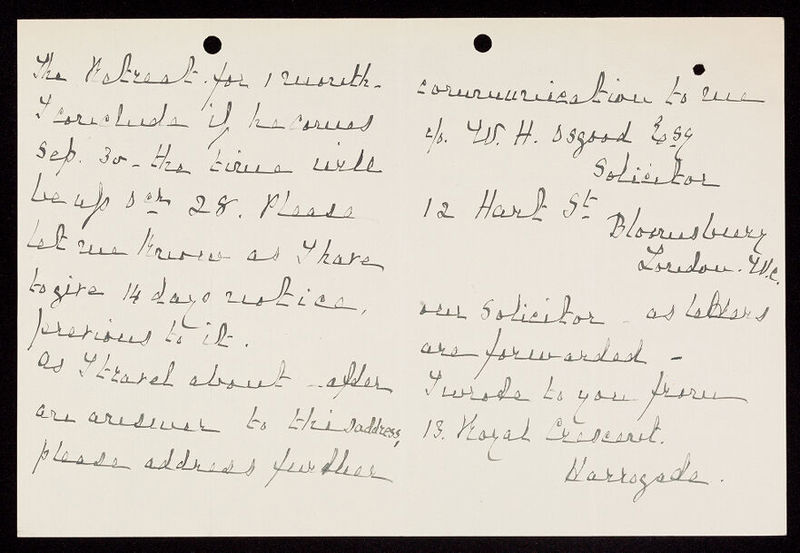 The Retreat. for 1 month -
I conclude if he comes
Sep. 30 - the time will
be up Oct 28. Please
let me know as I have
to give 14 days notice,
previous to it.
As I travel about - after
an answer to this address,
please address further
communication to me
c/o. W. H. Osgood Esq
Solicitor
12 Hart St
Bloomsbury
London. W.C.
our Solicitor - as letters
are forwarded -
I wrote to you from
13. Royal Crescent.
Harrogate.